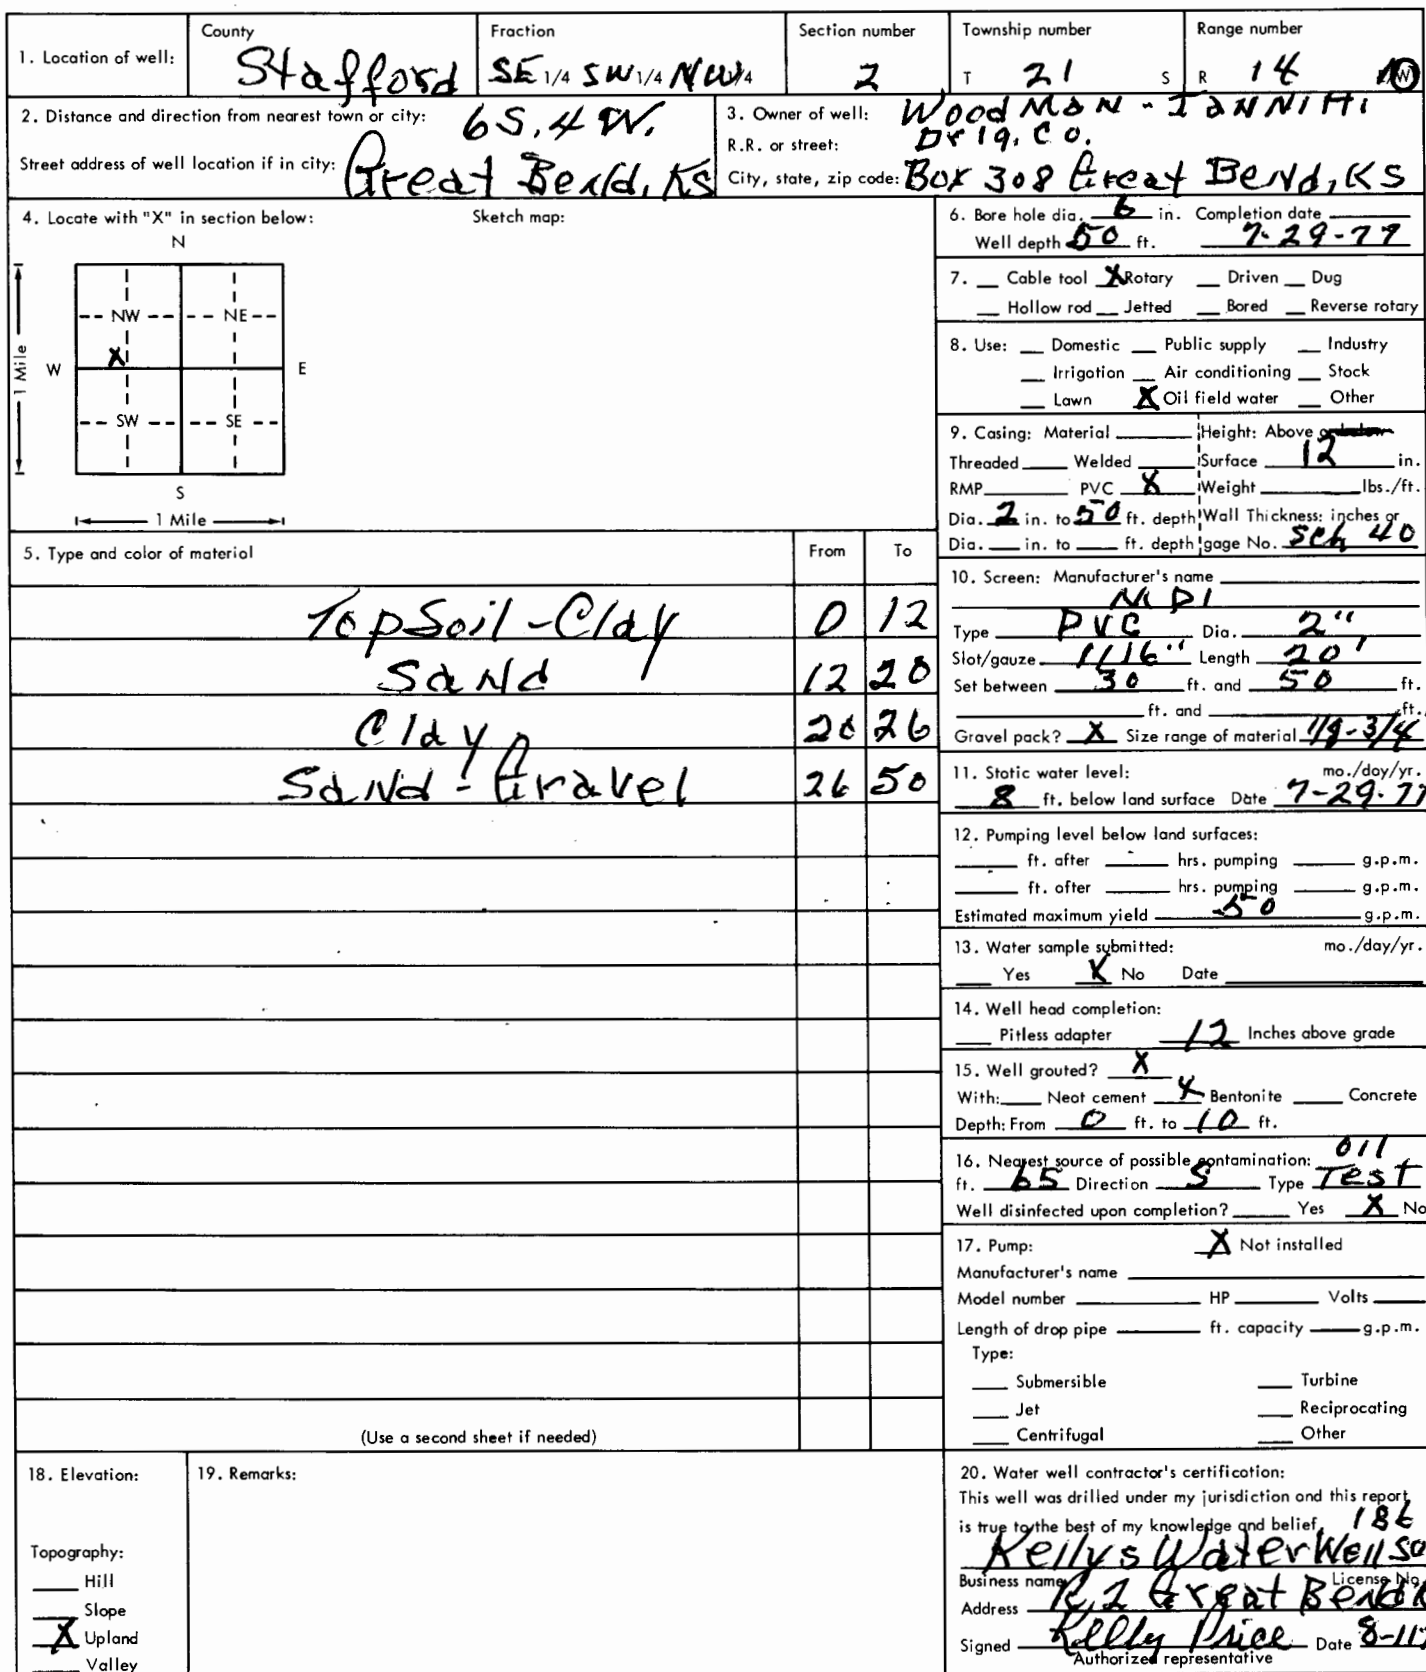 County Fraction Section number Township number Range number
1. Location of well: Stafford SE 1/4 SW 1/4 NW 1/4 2 T 21 S R 14 W
2. Distance and direction from nearest town or city: 6S, 4 W.
Street address of well location if in city: Great Bend, KS
3. Owner of well: WoodMAN - IANNITTi
R.R. or street: Drlg. Co.
City, state, zip code: Box 308 Great Bend, KS
4. Locate with "X" in section below: Sketch map:
N
NW NE
X
W E
1 Mile
SW SE
S
1 Mile
5. Type and color of material From To
TopSoil - Clay 0 12
Sand 12 20
Clay 20 26
Sand - Gravel 26 50
(Use a second sheet if needed)
6. Bore hole dia. 6 in. Completion date
Well depth 50 ft. 7-29-77
7. Cable tool X Rotary Driven Dug
Hollow rod Jetted Bored Reverse rotary
8. Use: Domestic Public supply Industry
Irrigation Air conditioning Stock
Lawn X Oil field water Other
9. Casing: Material Height: Above or below
Threaded Welded Surface 12 in.
RMP PVC X Weight lbs./ft.
Dia. 2 in. to 50 ft. depth Wall Thickness: inches or
Dia. in. to ft. depth gage No. Sch 40
10. Screen: Manufacturer's name
Type PVC Dia. 2"
Slot/gauze 1/16" Length 20'
Set between 30 ft. and 50 ft.
ft. and ft.
Gravel pack? X Size range of material 1/8-3/4
11. Static water level: mo./day/yr.
8 ft. below land surface Date 7-29-77
12. Pumping level below land surfaces:
ft. after hrs. pumping g.p.m.
ft. after hrs. pumping g.p.m.
Estimated maximum yield 50 g.p.m.
13. Water sample submitted: mo./day/yr.
Yes X No Date
14. Well head completion:
Pitless adapter 12 Inches above grade
15. Well grouted? X
With: Neat cement X Bentonite Concrete
Depth: From 0 ft. to 10 ft.
16. Nearest source of possible contamination: oil
ft. 65 Direction S Type Test
Well disinfected upon completion? Yes X No
17. Pump: X Not installed
Manufacturer's name
Model number HP Volts
Length of drop pipe ft. capacity g.p.m.
Type:
Submersible Turbine
Jet Reciprocating
Centrifugal Other
18. Elevation:
Topography:
Hill
Slope
X Upland
Valley
19. Remarks:
20. Water well contractor's certification:
This well was drilled under my jurisdiction and this report
is true to the best of my knowledge and belief. 186
Kellys Water Well
Business name License No.
Address R.2 Great Bend
Signed Kelly Price Date 8-11
Authorized representative